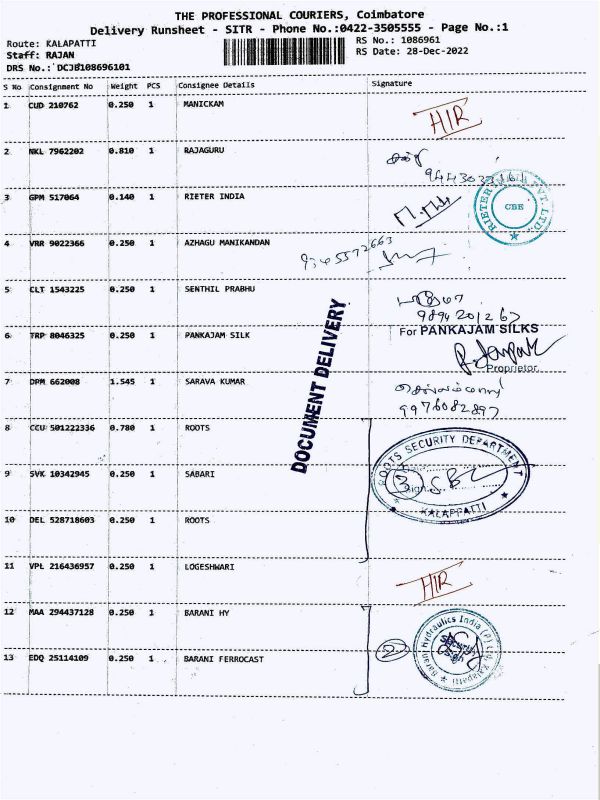 THE PROFESSIONAL COURIERS, Coimbatore
Delivery Runsheet - SITR - Phone No.:0422-3505555 - Page No.:1
Route: KALAPATTI
RS No.: 1086961
Staff: RAJAN
RS Date: 28-Dec-2022
DRS No.: DCJB108696101
S No Consignment No Weight PCS Consignee Details Signature
1 CUD 210762 0.250 1 MANICKAM
2 NKL 7962202 0.810 1 RAJAGURU
3 GPM 517064 0.140 1 RIETER INDIA
RIETER PVT. LTD. CBE
4 VRR 9022366 0.250 1 AZHAGU MANIKANDAN
5 CLT 1543225 0.250 1 SENTHIL PRABHU
9894201263
6 TRP 8046325 0.250 1 PANKAJAM SILK For PANKAJAM SILKS
Proprietor
7 DPM 662008 1.545 1 SARAVA KUMAR
9976082897
DOCUMENT DELIVERY
8 CCU 501222336 0.780 1 ROOTS
ROOTS SECURITY DEPARTMENT
9 SVK 10342945 0.250 1 SABARI
3
Sign
KALAPPATTI
10 DEL 528718603 0.250 1 ROOTS
11 VPL 216436957 0.250 1 LOGESHWARI
12 MAA 294437128 0.250 1 BARANI HY
Barani Hydraulics India (P) Ltd. Kalapatti
2
13 EDQ 25114109 0.250 1 BARANI FERROCAST